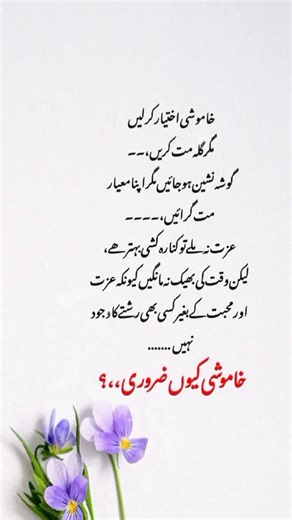 خاموشی اختیار کرلیں
مگر گلہ مت کریں،۔۔
گوشہ نشین ہوجائیں مگر اپنا معیار
مت گرائیں،۔۔۔۔
عزت نہ ملے تو کنارہ کشی بہتر ھے،
لیکن وقت کی بھیک نہ مانگیں کیونکہ عزت
اور محبت کے بغیر کسی بھی رشتے کا وجود
نہیں .......
خاموشی کیوں ضروری ،،؟